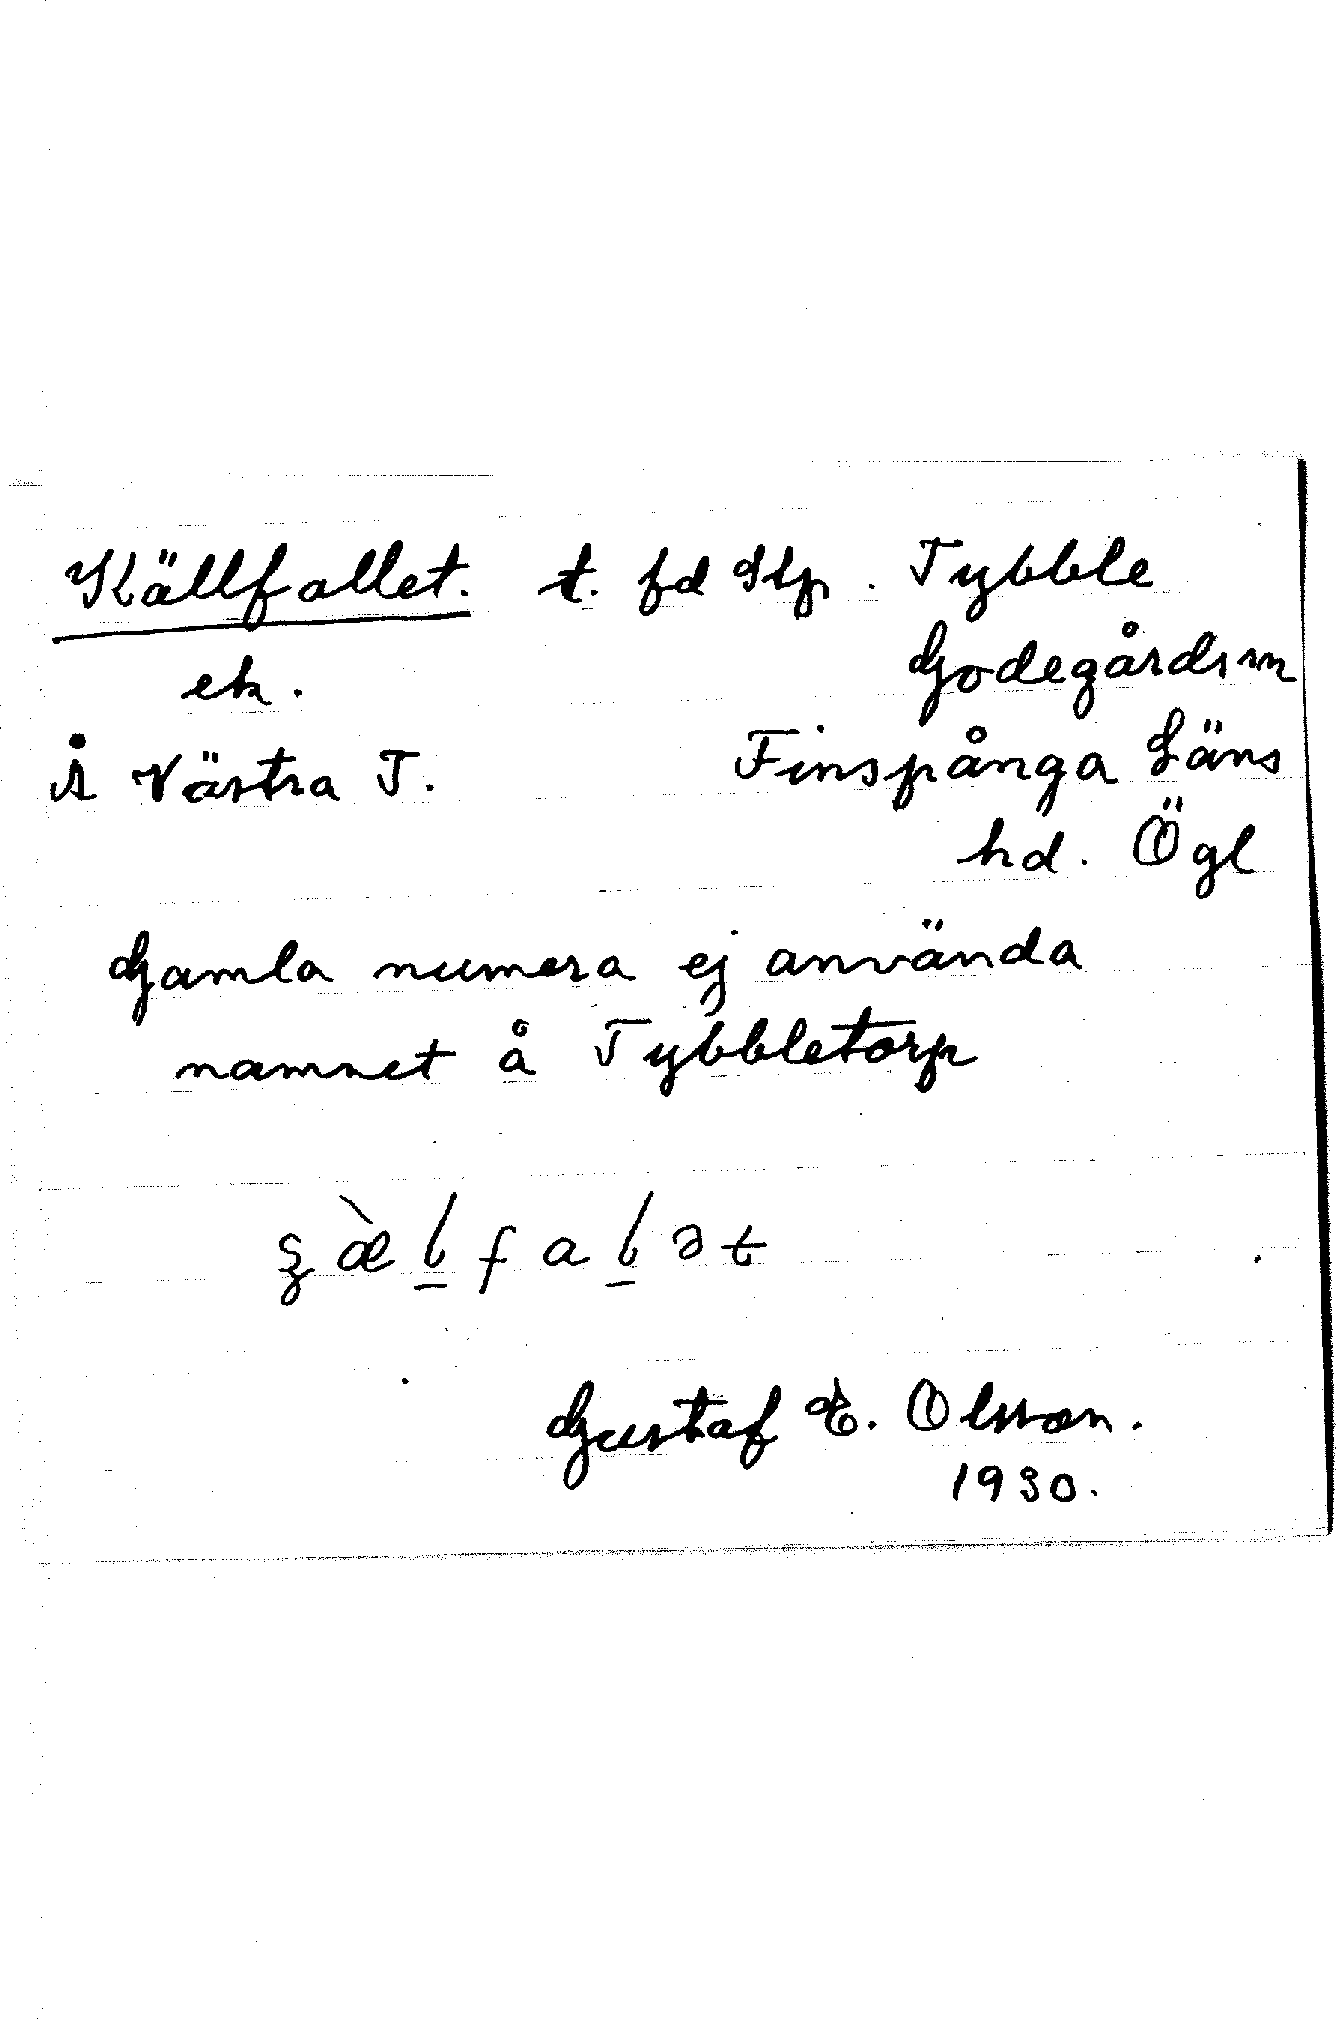 Källfallet. t. fd Stp. Tybble
ek. Godegårds sn
Å Västra T. Finspånga Läns
hd. Ögl
Gamla numera ej använda
namnet å Tybbletorp
fal ət
Gustaf E. Olsson.
1930.